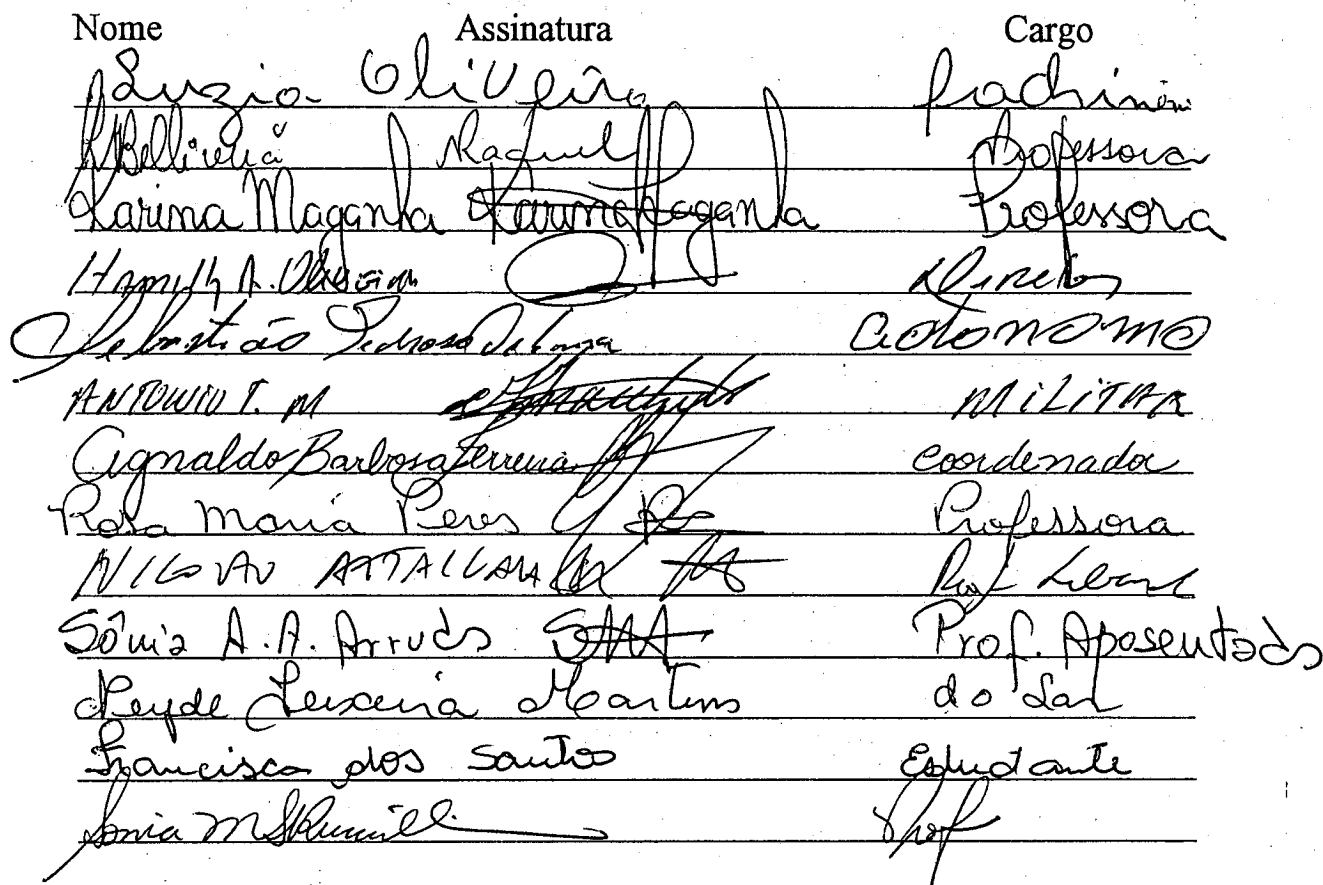 Nome Assinatura Cargo
Luzia Oliveira
Raquel Professora
Karina Maganha Karina Maganha Professora
A. Diretor
Sebastião Pedroso De Souza autonomo
ANTONIO T. M MILITAR
Agnaldo Barbosa Ferreira coordenador
Rosa Maria Peres Professora
NICOLAU Prof
Sônia A. A. Arruda Prof. Aposentada
Neyde Teixeira Martins do Lar
Francisca dos Santos Estudante
Sonia M Prof